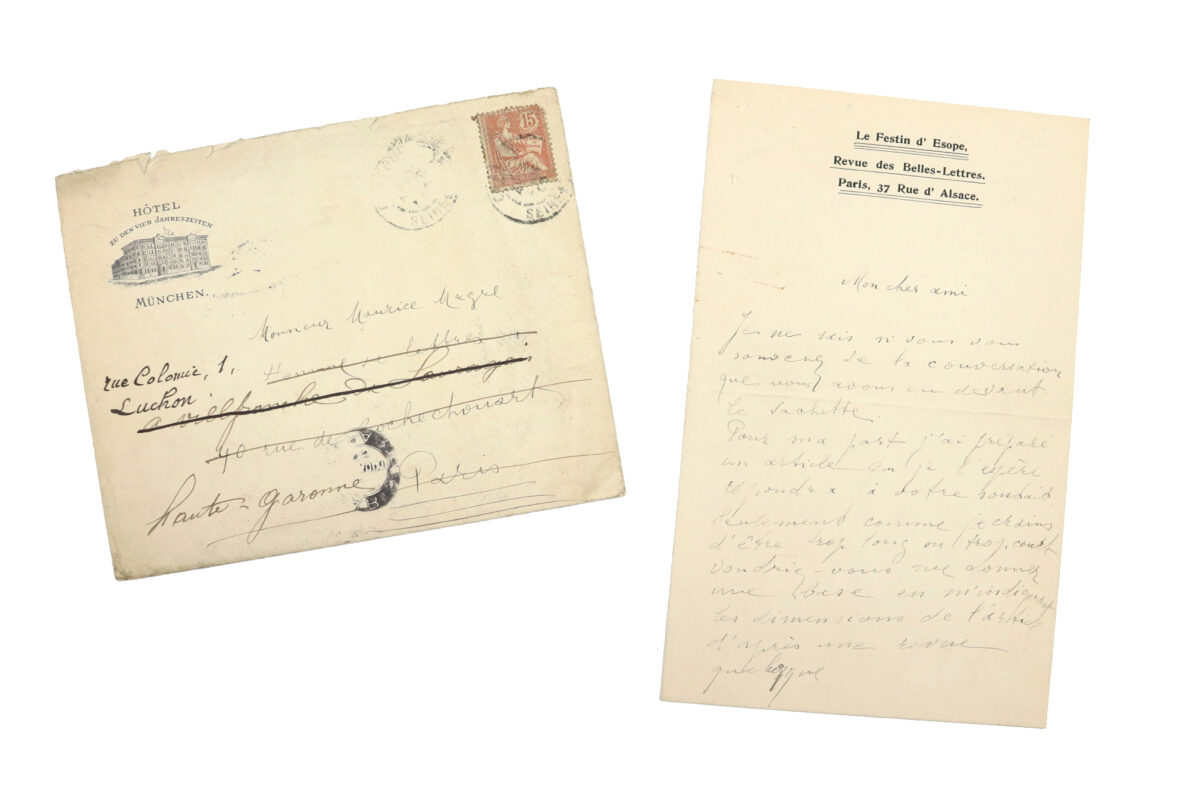 HÔTEL
ZU DEN VIER JAHRESZEITEN
MÜNCHEN.
15
SEINE
SEINE
Monsieur Maurice Magre
Homme de lettres
rue Colomic, 1,
Luchon
a Villefranche de Lauragais
40 rue de Rochechouart
haute-garonne
Paris
Le Festin d' Esope,
Revue des Belles-Lettres.
Paris, 37 Rue d' Alsace.
Mon cher ami
Je ne sais si vous vous
de la conversation
que nous avons eu devant
le
Pour ma part j'ai préparé
un article qui je l'espère
répondra à votre souhait
Seulement comme je crains
d'être trop long ou trop court
voudriez-vous me donner
une base en m'indiquant
les dimensions de l'article
d'après une revue
quelconque